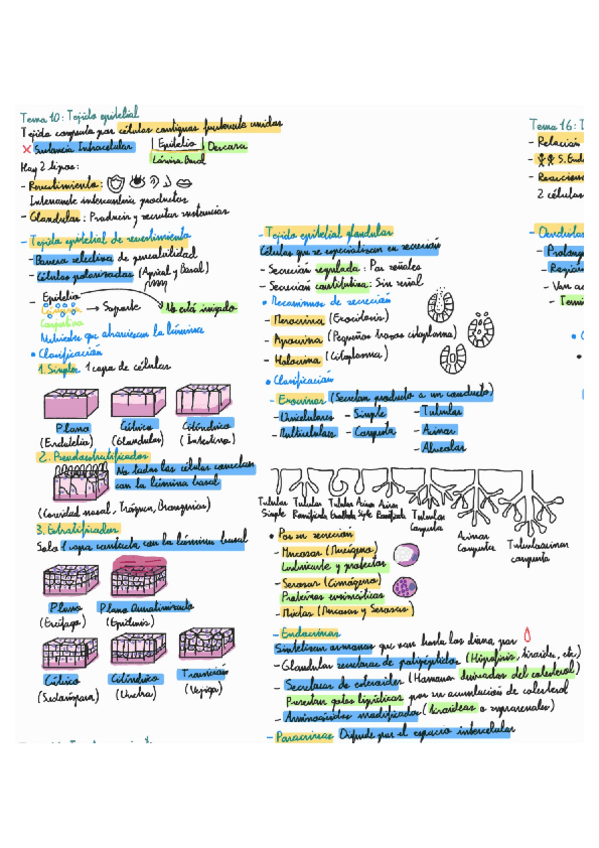 Tema 10: Tejido epitelial
Tejido compuesto por células contiguas fuertemente unidas
x Sustancia Intracelular
Epitelio
Descansa
Lámina Basal
Hay 2 tipos:
- Revestimiento:
Intercambio productos
- Glandular: Producir y secretar sustancias
- Tejido epitelial de revestimiento
- Barrera selectiva de permeabilidad
- Células polarizadas (Apical y Basal)
- Epitelio
Lámina → Soporte
No está irrigado
Conjuntivo
Nutrientes que atraviesan la lámina
• Clasificación
1. Simple 1 capa de células
Plano
(Endotelio)
Cúbico
(Glandular)
Cilíndrico
(Intestino)
2. Pseudoestratificado
No todas las células conectan
con la lámina basal
(Cavidad nasal, Tráquea, Bronquios)
3. Estratificado
Solo 1 capa contacta con la lámina basal
Plano
(Esófago)
Plano Queratinizado
(Epidermis)
Cúbico
(Sudorípara)
Cilíndrico
(Uretra)
Transición
(Vejiga)
- Tejido epitelial glandular
Células que se especializan en secreción
- Secreción regulada: Por señales
- Secreción constitutiva: Sin señal
• Mecanismos de secreción
- Merocrina (Exocitosis)
- Apocrina (Pequeños trozos citoplasma)
- Holocrina (Citoplasma)
• Clasificación
- Exocrinas (Secretan producto a un conducto)
- Unicelulares - Simple - Tubular
- Multicelulares - Compuesta - Acinar
- Alveolar
Tubular Simple
Tubular Ramificada
Tubular Enrollada
Acinar Simple
Acinar Ramificada
Tubular Compuesta
Acinar Compuesta
Tubuloacinar compuesta
• Por su secreción
- Mucosas (Mucígeno)
Lubricante y protector
- Serosas (Cimógeno)
Proteínas enzimáticas
- Mixtas (Mucosas y Serosas)
- Endocrinas
Sintetizan hormonas que van hasta las diana por
- Glandular secretoras de polipéptidos (Hipófisis, tiroides, etc.)
- Secretoras de esteroides (Hormonas derivadas del colesterol)
Presentan gotas lipídicas por su acumulación de colesterol
- Aminoácidos modificados (tiroideas o suprarrenales)
- Paracrinas Difunde por el espacio intercelular
Tema 16: T
- Relación
- S. End
- Reaccion
2 células
- Dendritas
- Prolong
- Región
- Van a
- Termi